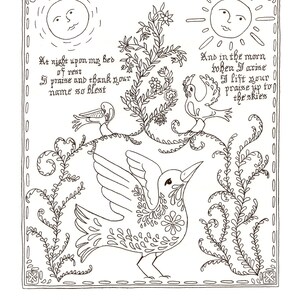 At night upon my bed
of rest
I praise and thank your
name so blest
And in the morn
when I arise
I lift your
praise up to
the skies